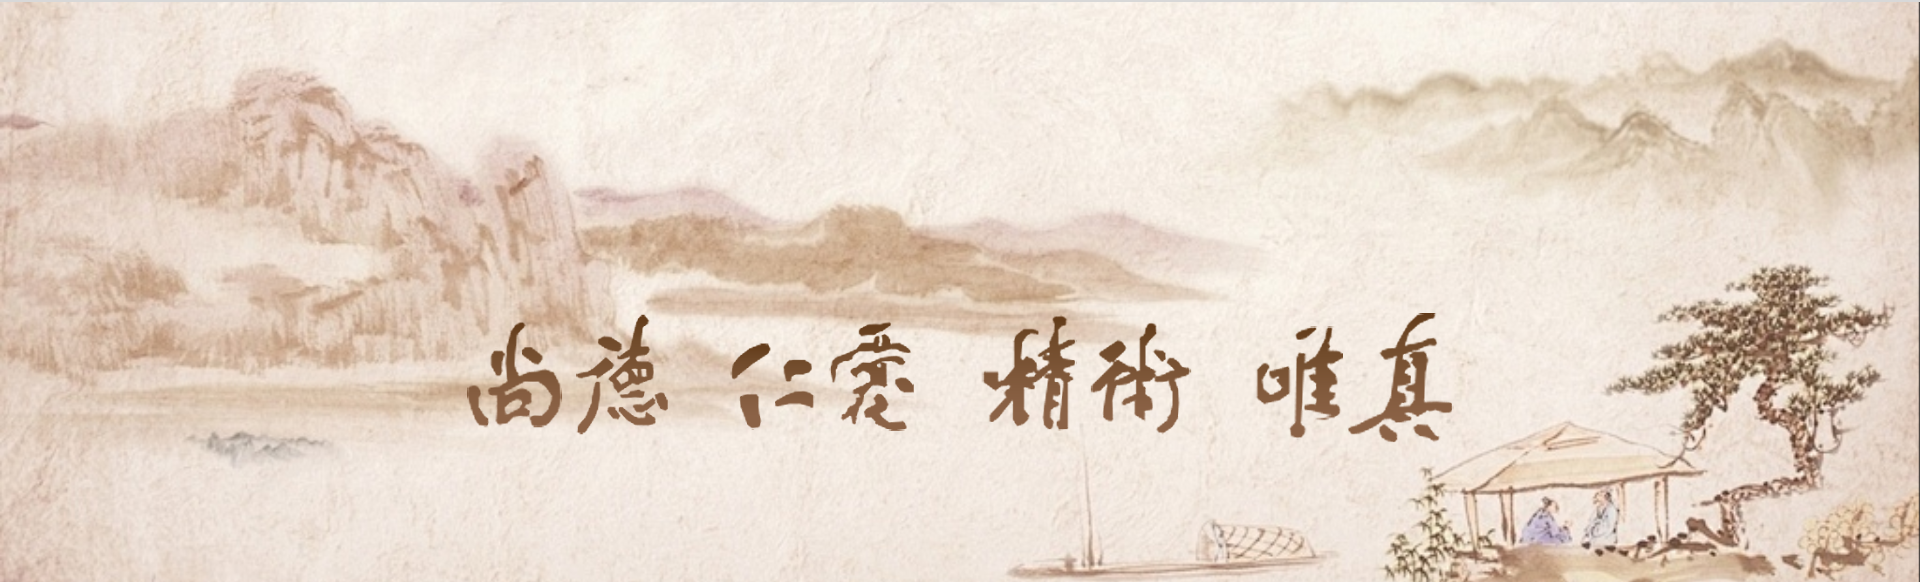 尚德 仁愛 精術 唯真